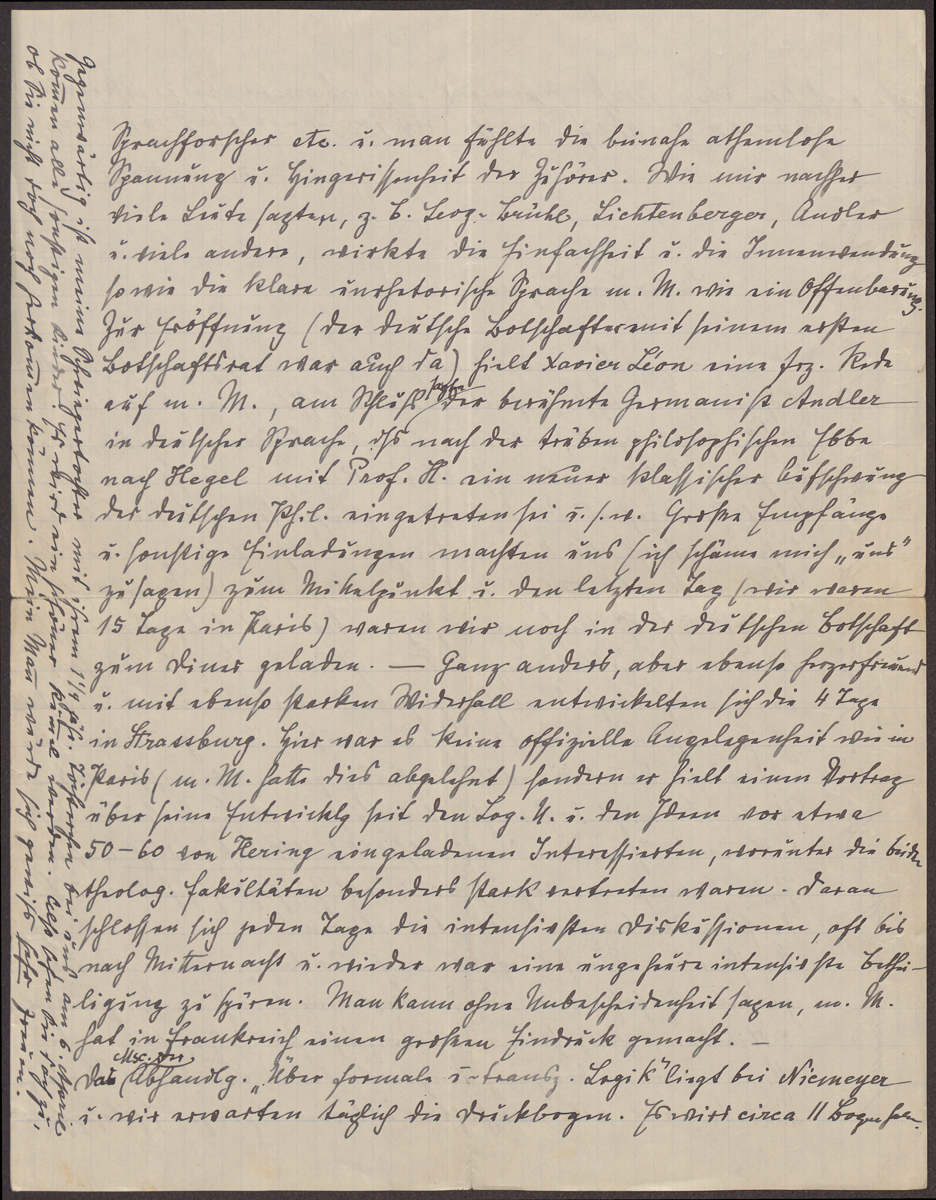 Sprachforscher etc. u. man fühlte die beinahe athemlose
Spannung u. Hingerissenheit der Zuhörer. Wie mir nachher
viele Leute sagten, z. B. Levy-Brühl, Lichtenberger, Andler
u. viele andere, wirkte die Einfachheit u. die Innenwendung
sowie die klare unrhetorische Sprache m. M. wie ein Offenbarung.
Zur Eröffnung (der deutsche Botschafter mit seinem ersten
Botschaftsrat war auch da) hielt Xavier Léon eine frz. Rede
auf m. M., am Schluß sagte der berühmte Germanist Andler
in deutscher Sprache, dss nach der trüben philosophischen Ebbe
nach Hegel mit Prof. H. ein neuer klassischer Aufschwung
der deutschen Phil. eingetreten sei u. s. w. Große Empfänge
u. sonstige Einladungen machten uns (ich schäme mich „uns“
zu sagen) zum Mittelpunkt u. den letzten Tag (wir waren
15 Tage in Paris) waren wir noch in der deutschen Botschaft
zum Diner geladen. — Ganz anders, aber ebenso herzerfreuend
u. mit ebenso starken Widerhall entwickelten sich die 4 Tage
in Strassburg. Hier war es keine offizielle Angelegenheit wie in
Paris (m. M. hatte dies abgelehnt) sondern er hielt einen Vortrag
über seine Entwicklg seit den Log. U. u. den Ideen vor etwa
50-60 von Hering eingeladenen Interessierten, worunter die beiden
theolog. Fakultäten besonders stark vertreten waren. Daran
schlossen sich jeden Tage die intensivsten Diskussionen, oft bis
nach Mitternacht u. wieder war eine ungeheure intensivste Bethei-
ligung zu spüren. Man kann ohne Unbescheidenheit sagen, m. M.
hat in Frankreich einen großen Eindruck gemacht. —
Das Msc. der Abhandlg. „Über formale u. transz. Logik“ liegt bei Niemeyer
u. wir erwarten täglich die Druckbogen. Es wird circa 11 Bogen haben.
Gegenwärtig ist meine Schwiegertochter mit ihrem 1¼ jähr. Töchterchen bei uns am 6. April
kommen alle sonstigen Kinder, es wird ein schöner Trubel werden. Ach sehen Sie doch zu,
ob Sie nicht doch noch herkommen können. Mein Mann würde sich gewiß sehr freuen.